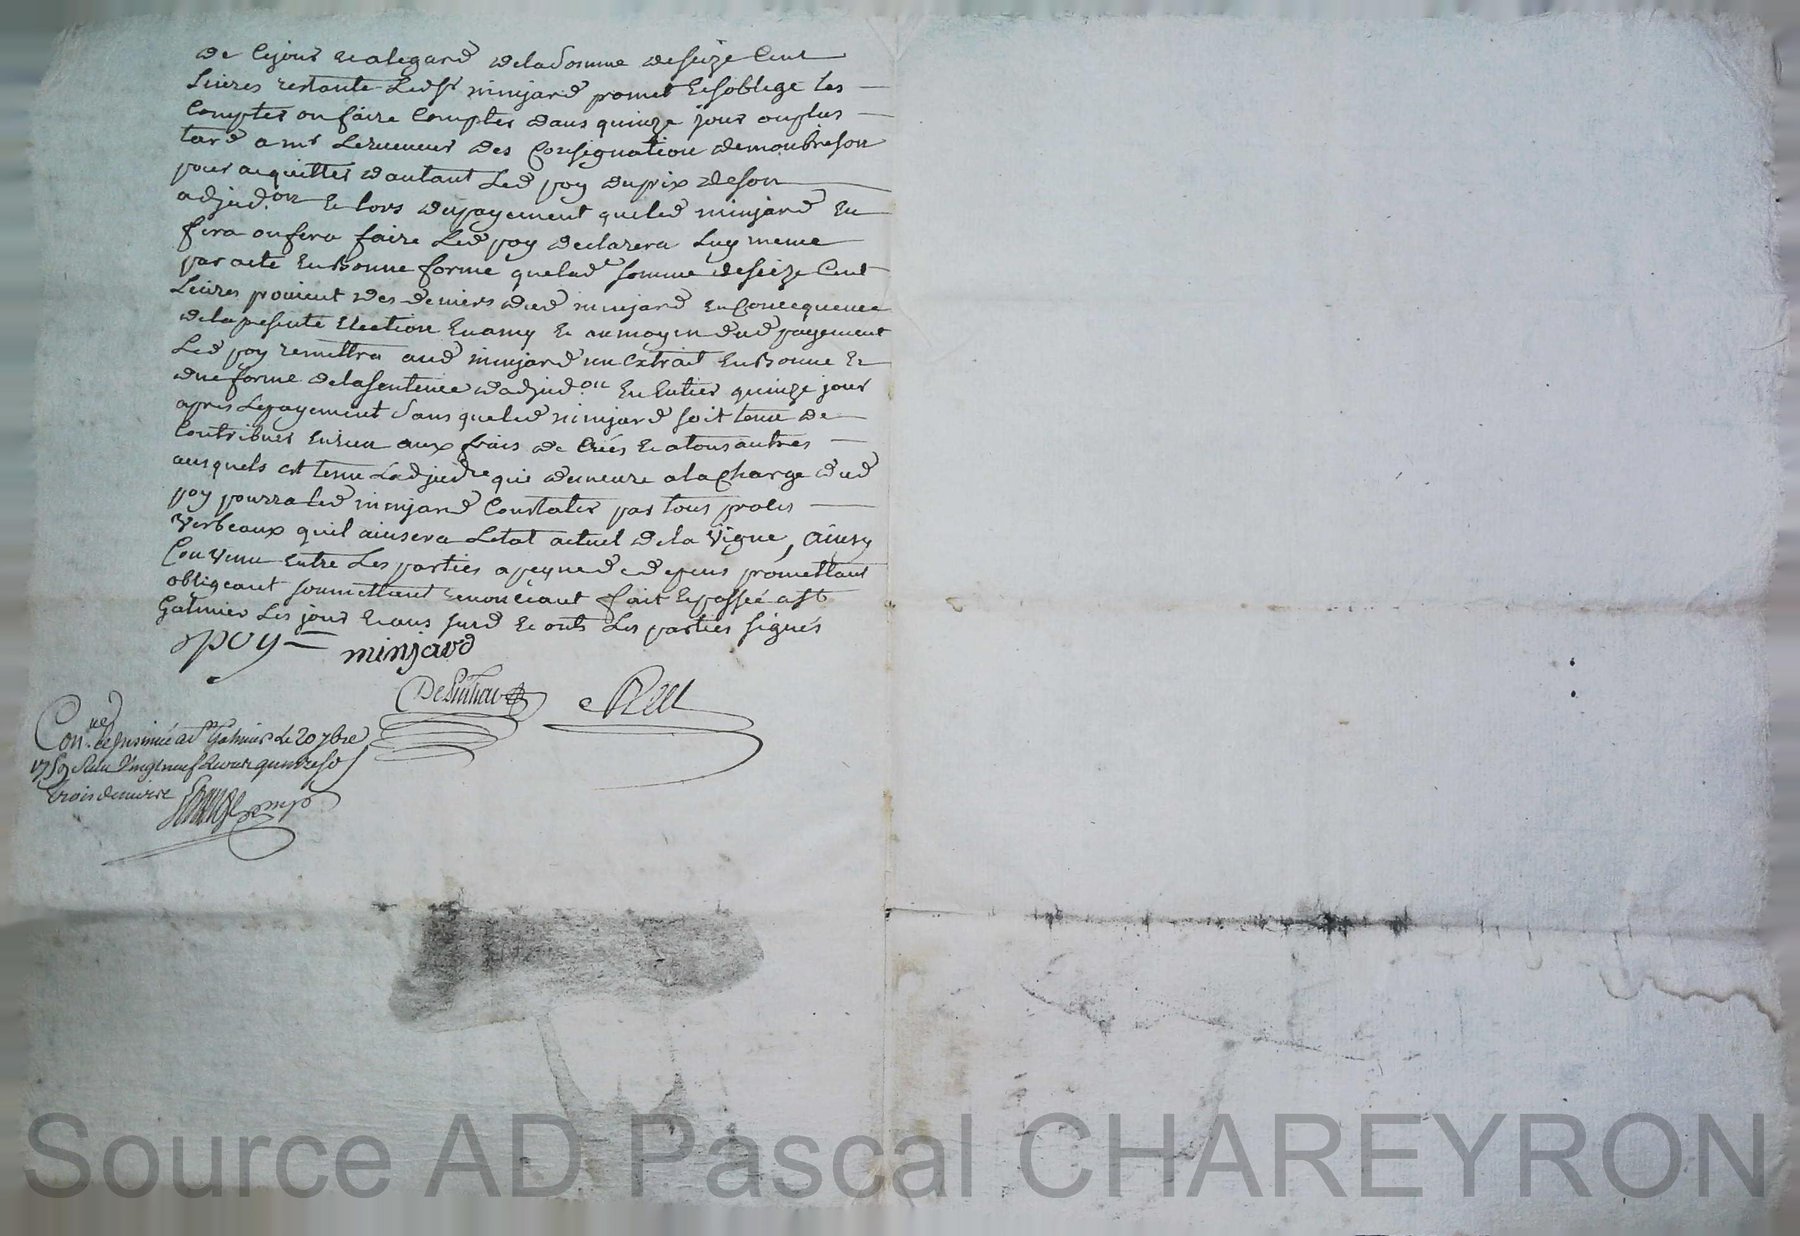 de ce jour et a legard de la somme de seize Cent
Livres restante Led Sr minjard promet et soblige les
Compter ou faire Compter dans quinze jour au plus
tard a mr Lereceveur des Consignation de monbrison
pour acquitter dautant Led poy du prix de son
adjudon et lors du payement que led minjard en
fera ou fera faire Led poy declarera luy meme
par acte en Bonne forme que lade somme de seize Cent
Livres provient des deniers dud minjard en Concequence
de la presente Election en amy et au moyen dud payement
Led poy remettra aud minjard un Extrait en Bonne et
due forme de la sentence dadjudon en Entier quinze jour
apres le payement sans que led minjard soit tenu de
Contribuer en rien aux frais de Criés et a tous autres
ausquels est tenu Ladjudre qui demeure a la Charge dud
poy pourra led minjard Constater par tous proces
Verbeaux quil avisera Letat actuel de la Vigne, ainsy
Convenu entre Les parties a peyne de depens promettant
obligeant soumettant renonceant fait et passé a St
Galmier Les jour et ans susd et onts Les parties signés
poy minjard
Conlle et Insinué a St Galmier le 20 7bre
1759 Reçu Vingt neuf livres quinze sols
trois deniers
Source AD Pascal CHAREYRON